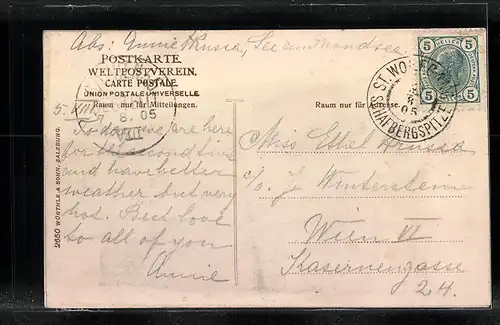 Abs: Annie Russa, See am Mondsee.
POSTKARTE.
WELTPOSTVEREIN.
CARTE POSTALE.
UNION POSTALE UNIVERSELLE.
Raum nur für Mitteilungen.
Raum nur für Adresse.
5 HELLER 5
5 5
ST. WOLFGANG
SCHAFBERGSPITZE
8
05
5. VIII.
7 8 05
To day we are here
for the second time
and have better
weather but very
hot. Best love
to all of you
Annie
Miss Ethel Russa
c/o J. Winterstein
Wien VI
Kasernengasse
24.
2650 WÜRTHLE & SOHN, SALZBURG.